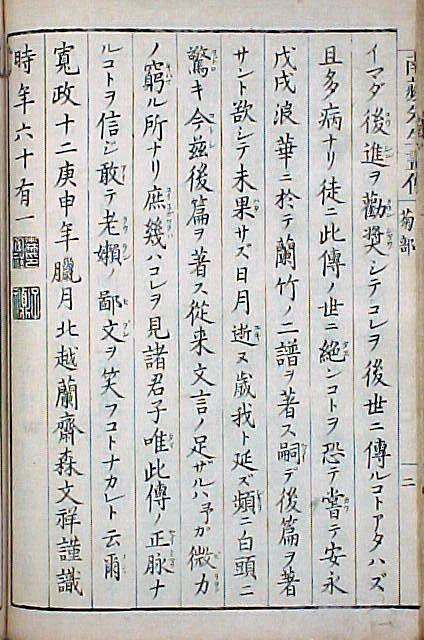 イマダ後進ヲ勸奬シテコレヲ後世ニ傳ルコトアタハズ
且多病ナリ徒ニ此傳ノ世ニ絕ンコトヲ恐テ嘗テ安永
戊戌浪華ニ於テ蘭竹ノ二譜ヲ著ス嗣デ後篇ヲ著
サント欲シテ未果サズ日月逝ヌ歲我ト延ズ頻ニ白頭ニ
驚キ今玆後篇ヲ著ス從来文言ノ足ザルハ予ガ微力
ノ窮ル所ナリ庶幾ハコレヲ見諸君子唯此傳ノ正脉ナ
ルコトヲ信ジ敢テ老嬾鄙文ヲ笑フコトナカレト云爾
寬政十二庚申年臘月北越蘭齋森文祥謹識
時年六十有一
菊部
二